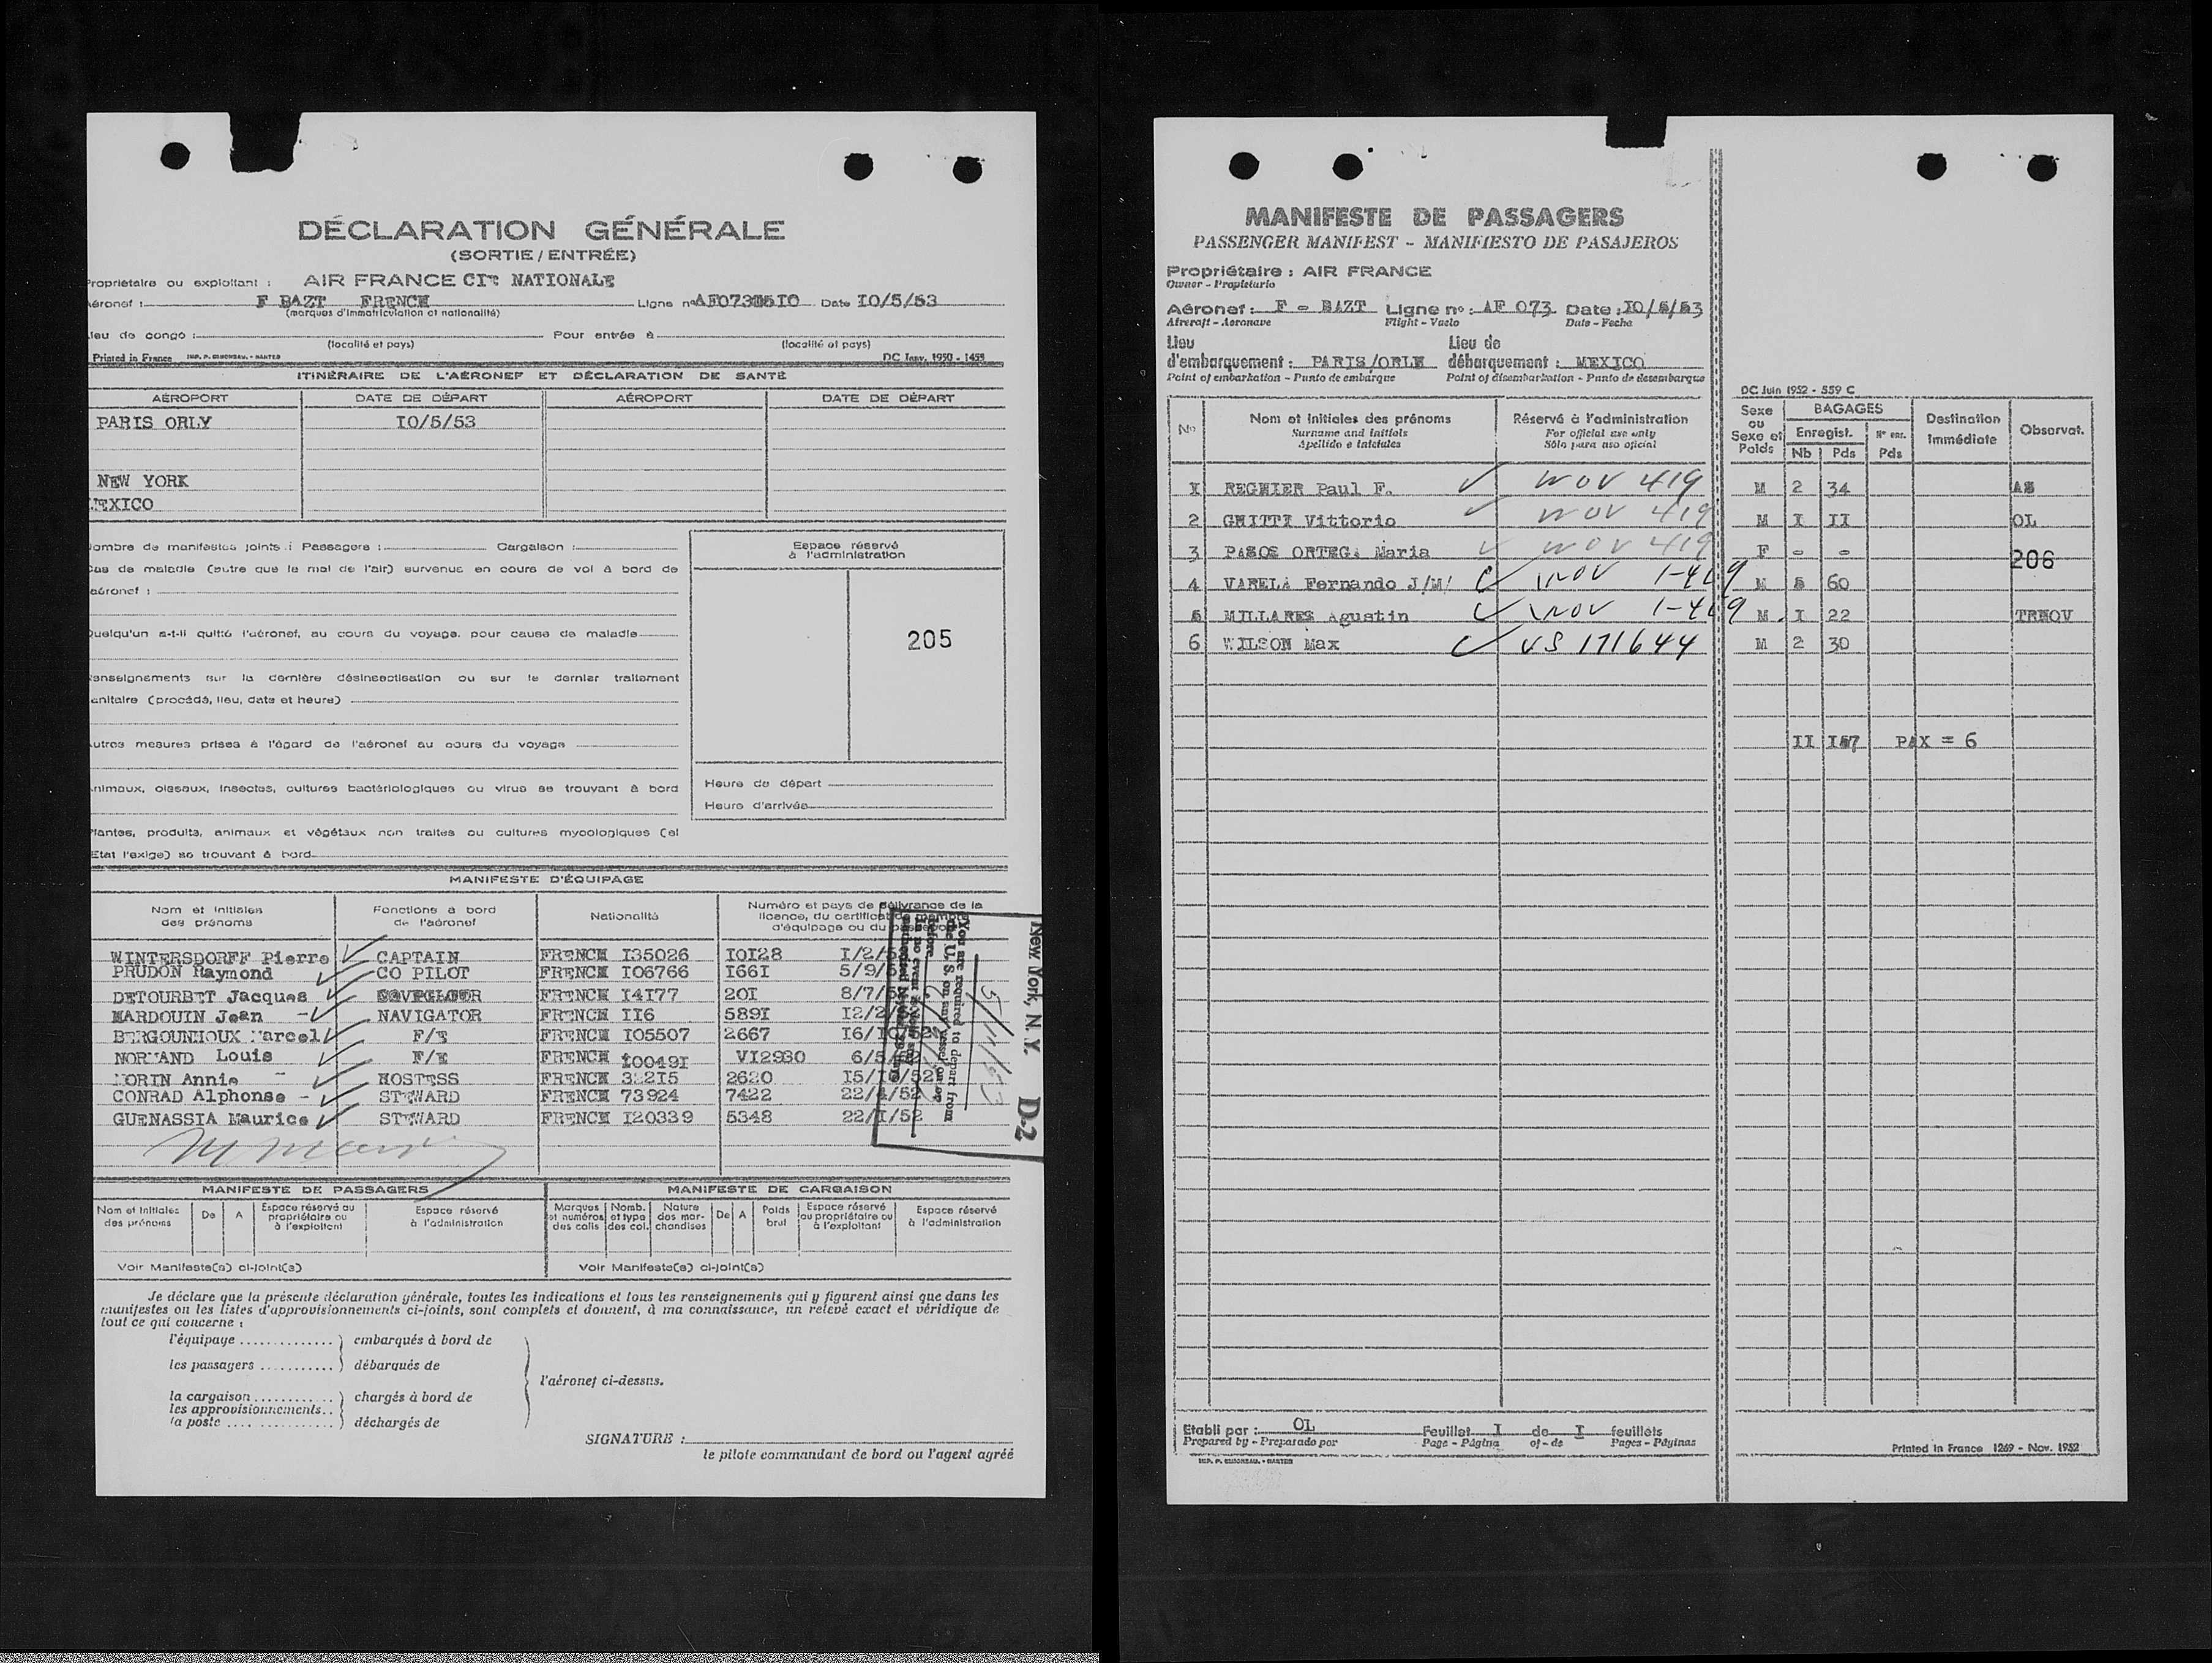 DÉCLARATION GÉNÉRALE
(SORTIE / ENTRÉE)
Propriétaire ou exploitant : AIR FRANCE CIE NATIONALE
Aéronef : F BAZT FRENCH Ligne n° Date 10/5/53
(marques d'immatriculation et nationalité)
Lieu de congo : Pour entrée à
(localité et pays) (localité et pays)
Printed in France IMP. P. GUIONEAU. - NANTES DC Janv. 1950 - 1455
ITINÉRAIRE DE L'AÉRONEF ET DÉCLARATION DE SANTÉ
AÉROPORT DATE DE DÉPART AÉROPORT DATE DE DÉPART
PARIS ORLY IO/5/53
NEW YORK
MEXICO
Nombre de manifestes joints : Passagers : Cargaison :
Cas de maladie (autre que le mal de l'air) survenus en cours de vol à bord de
l'aéronef :
Quelqu'un a-t-il quitté l'aéronef, au cours du voyage, pour cause de maladie
Renseignements sur la dernière désinsectisation ou sur le dernier traitement
sanitaire (procédé, lieu, date et heure)
Autres mesures prises à l'égard de l'aéronef au cours du voyage
Animaux, oiseaux, insectes, cultures bactériologiques ou virus se trouvant à bord
Plantes, produits, animaux et végétaux non traités ou cultures mycologiques (si
l'Etat l'exige) se trouvant à bord
Espace réservé
à l'administration
205
Heure de départ
Heure d'arrivée
MANIFESTE D'ÉQUIPAGE
Nom et initiales des prénoms Fonctions à bord de l'aéronef Nationalité Numéro et pays de délivrance de la licence, du certificat de membre d'équipage ou du passeport
WINTERSDORFF Pierre CAPTAIN FRENCH I35026 IOI28 I/2/
PRUDON Raymond CO PILOT FRENCH IO6766 I66I 5/9/
DETOURBET Jacques FRENCH I4I77 20I 8/7/
HARDOUIN Jean - NAVIGATOR FRENCH II6 589I I2/2/
BERGOUNHOUX Marcel F/E FRENCH IO5507 2667 I6/IO/52
NORMAND Louis F/E FRENCH I0049I VI2930 6/5/
MORIN Annie HOSTESS FRENCH 2620 I5/
CONRAD Alphonse - STEWARD FRENCH 73924 7422 22/4/52
GUENASSIA Maurice STEWARD FRENCH I20339 5348 22/I/52
New York, N. Y. D-2
5/11/53
You are required to depart from
the U. S. on any vessel or
before
in no event
MANIFESTE DE PASSAGERS MANIFESTE DE CARGAISON
Nom et initiales des prénoms De A Espace réservé au propriétaire ou à l'exploitant Espace réservé à l'administration Marques et numéros des colis Nomb. et type des col. Nature des marchandises De A Poids brut Espace réservé au propriétaire ou à l'exploitant Espace réservé à l'administration
Voir Manifeste(s) ci-joint(s) Voir Manifeste(s) ci-joint(s)
Je déclare que la présente déclaration générale, toutes les indications et tous les renseignements qui y figurent ainsi que dans les
manifestes ou les listes d'approvisionnements ci-joints, sont complets et donnent, à ma connaissance, un relevé exact et véridique de
tout ce qui concerne :
l'équipage .............. ) embarqués à bord de
les passagers ........... ) débarqués de
l'aéronef ci-dessus.
la cargaison ............ ) chargés à bord de
les approvisionnements..
la poste .... ............ ) déchargés de
SIGNATURE :
le pilote commandant de bord ou l'agent agréé
MANIFESTE DE PASSAGERS
PASSENGER MANIFEST - MANIFIESTO DE PASAJEROS
Propriétaire : AIR FRANCE
Owner - Propietario
Aéronef : F - BAZT Ligne n° : AF 073 Date : IO/5/53
Aircraft - Aeronave Flight - Vuelo Date - Fecha
Lieu Lieu de
d'embarquement : PARIS/ORLY débarquement : MEXICO
Point of embarkation - Punto de embarque Point of disembarkation - Punto de desembarque
DC Juin 1952 - 559 C
N° Nom et initiales des prénoms Réservé à l'administration Sexe ou Sexe et Poids BAGAGES Destination immédiate Observat.
Surname and initials For official use only Enregist. N° enr.
Apellido e iniciales Sólo para uso oficial Nb Pds Pds
I REGNIER Paul F. NOV 419 M 2 34 AS
2 GHITTI Vittorio NOV 419 M I II OL
3 PASOS ORTEGA Maria NOV 419 F - - 206
4 VARELA Fernando J/M/ NOV 1-419 M 5 60
5 MILLARES Agustin NOV 1-419 M. I 22 TRNOV
6 WILSON Max US 171644 M 2 30
II I57 PAX = 6
Etabli par : OL Feuillet I de I feuillets
Prepared by - Preparado por Page - Página of - de Pages - Páginas
IMP. P. GUIONEAU. - NANTES
Printed in France 1269 - Nov. 1952